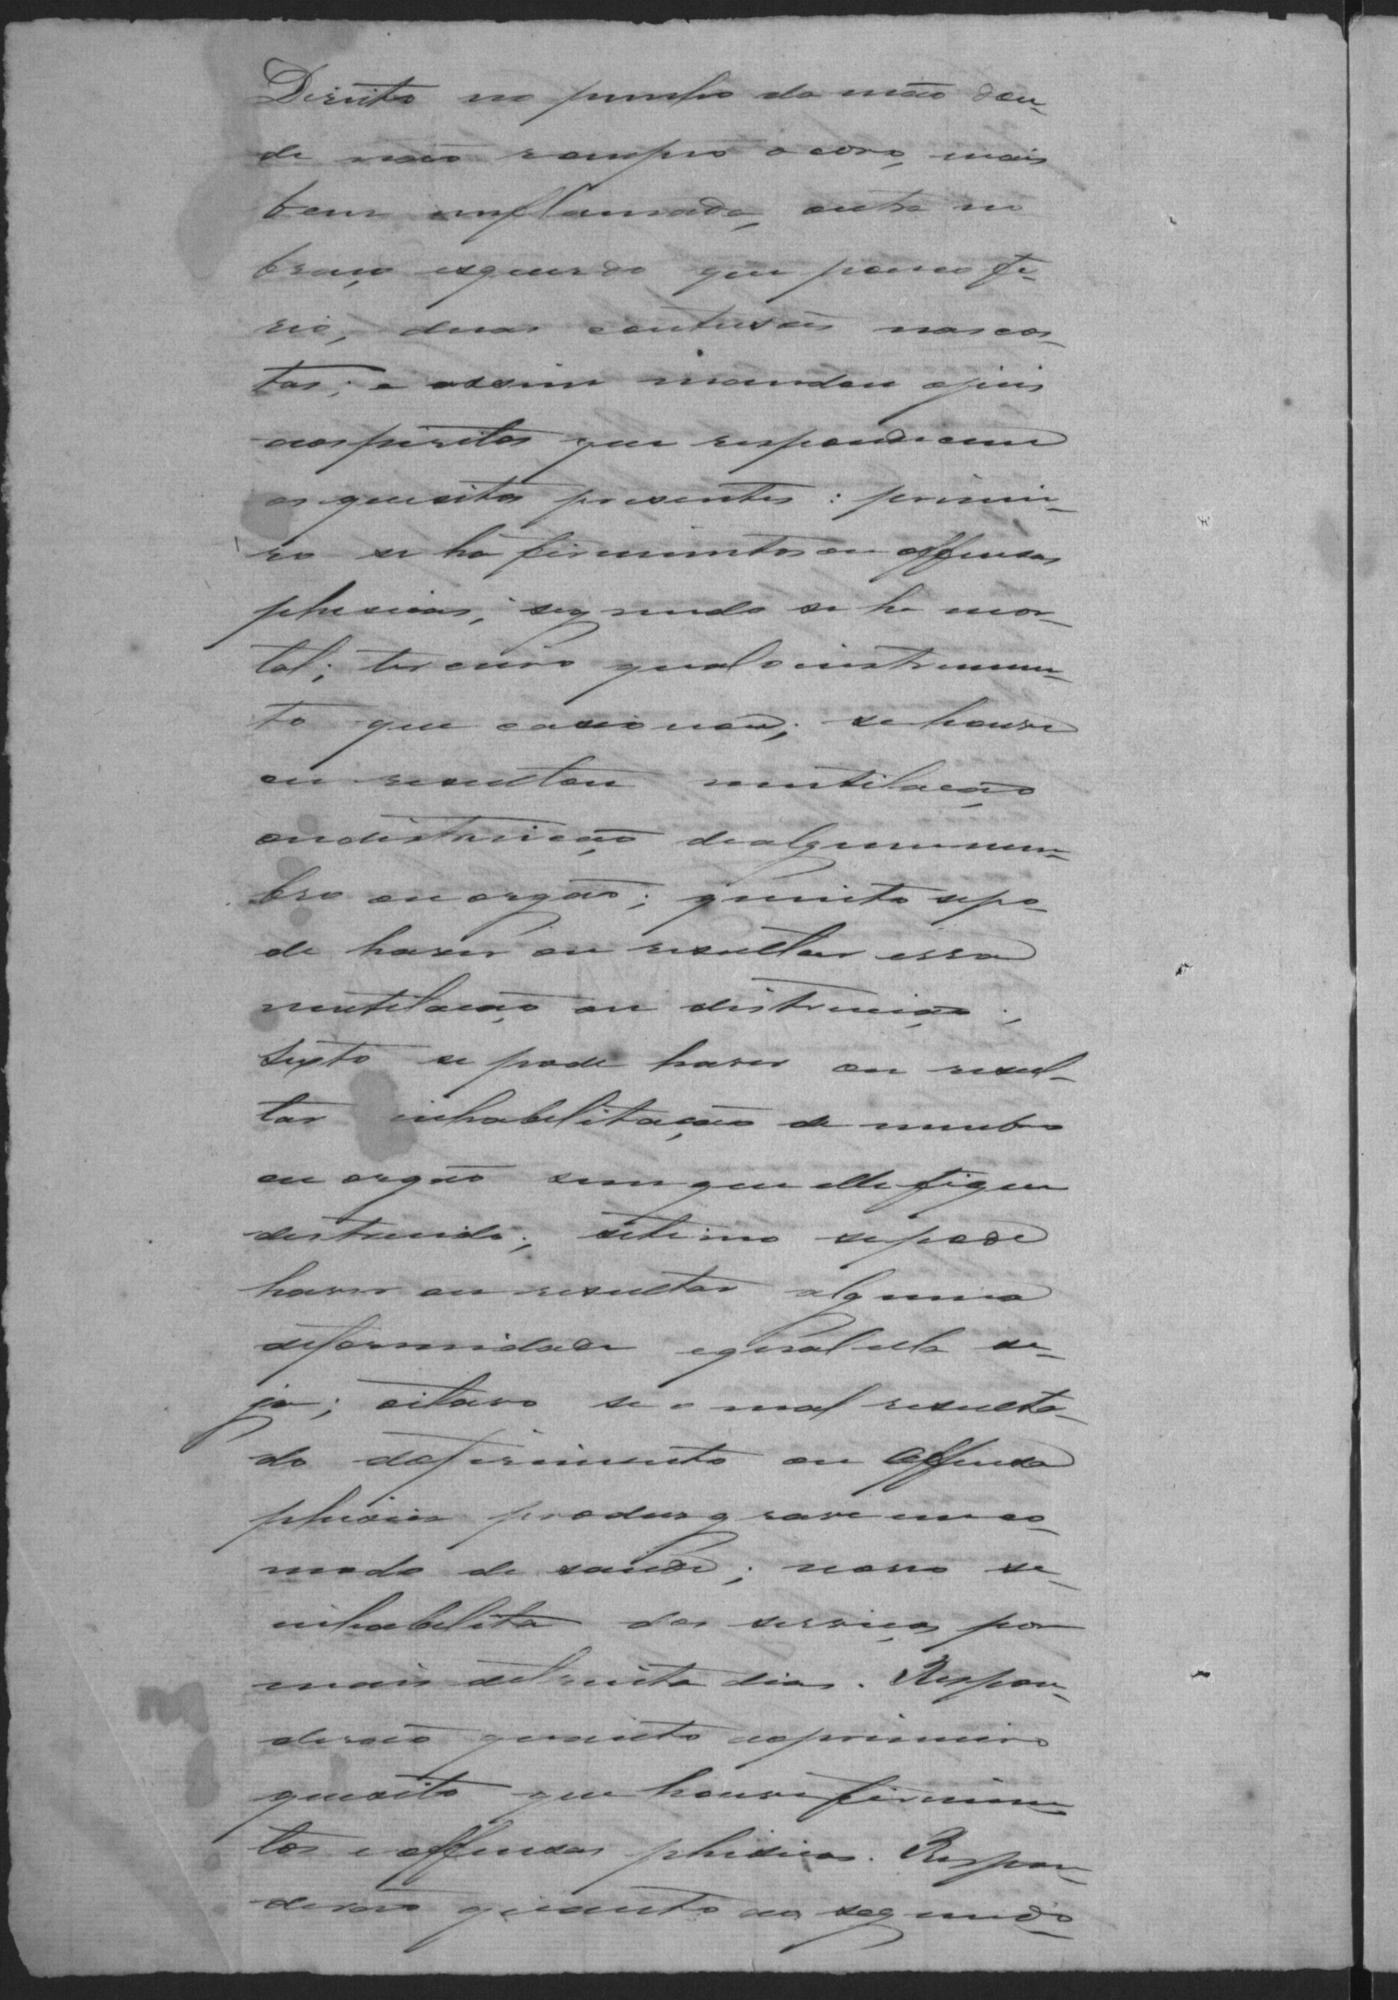 Direito no punho da mão don-
de não rompeo o coro, mais
bem inflamada, outra no
braço esquerdo que pouco fe-
rio, duas contusões nas cos-
tas; e assim mandou o juis
aos peritos que respondecem
os quesitos presentes: primei-
ro se ha ferimentos ou offensas
phisicas; segundo se he mor-
tal; terceiro qual o instrumen-
to que casionou; se houve
ou resultou mutilação
ou distruicão de algum mem-
bro ou orgão; quinto se po-
de haver ou resultar essa
mutilacão ou distruicão;
Sexto se pode haver ou resul-
tar inhabilitação de membro
ou orgão sem que elle fique
destruido; setimo se pode
haver ou resultar alguma
deformidade e qual ella se-
ja; oitavo se o mal resulta-
do do ferimento ou offensa
phisica produs grave inco-
modo de saúde; nono se
inhabilita dos serviços por
mais de trinta dias. Respon-
derão quanto ao primeiro
quesito que houve ferimen-
tos e offensas phisicas. Respon-
derão quanto ao segundo